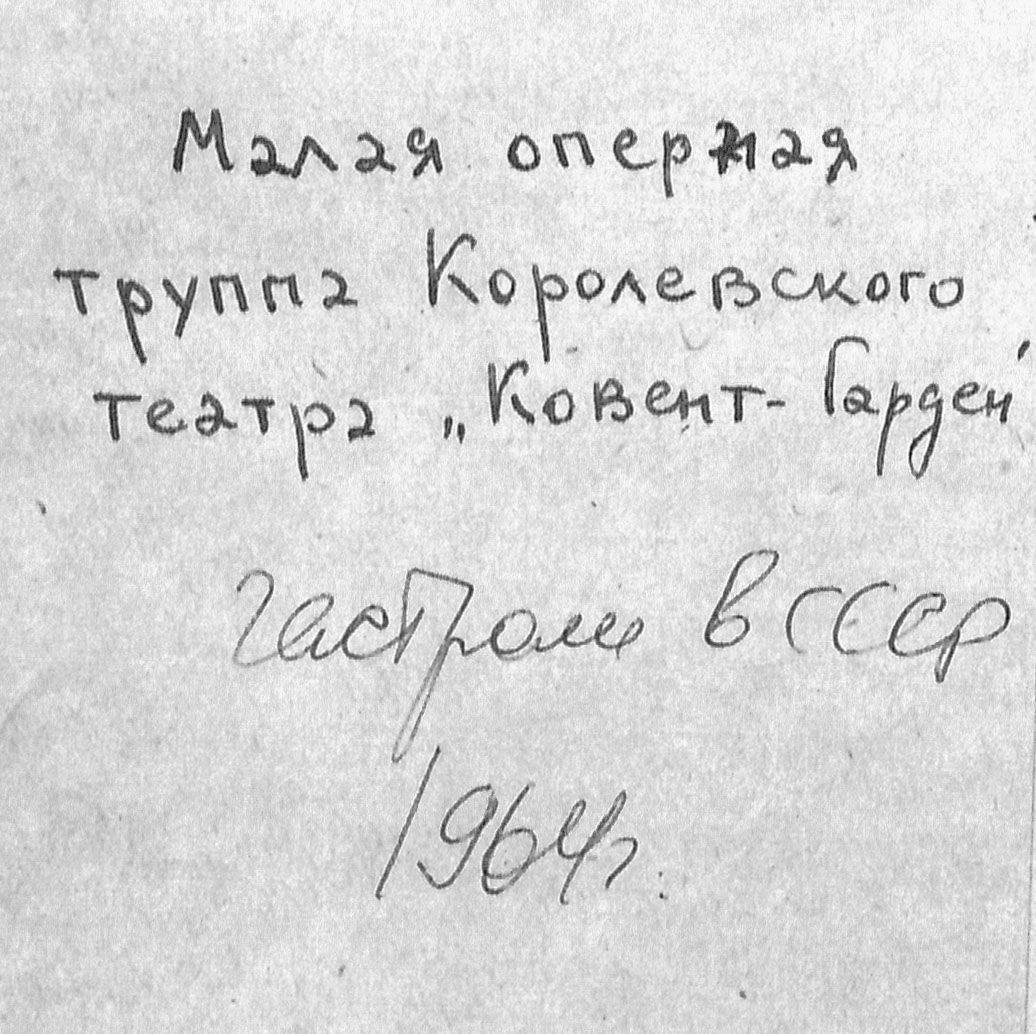 Малая оперная
труппа Королевского
театра „Ковент-Гарден"
гастроли в СССР
1964г.